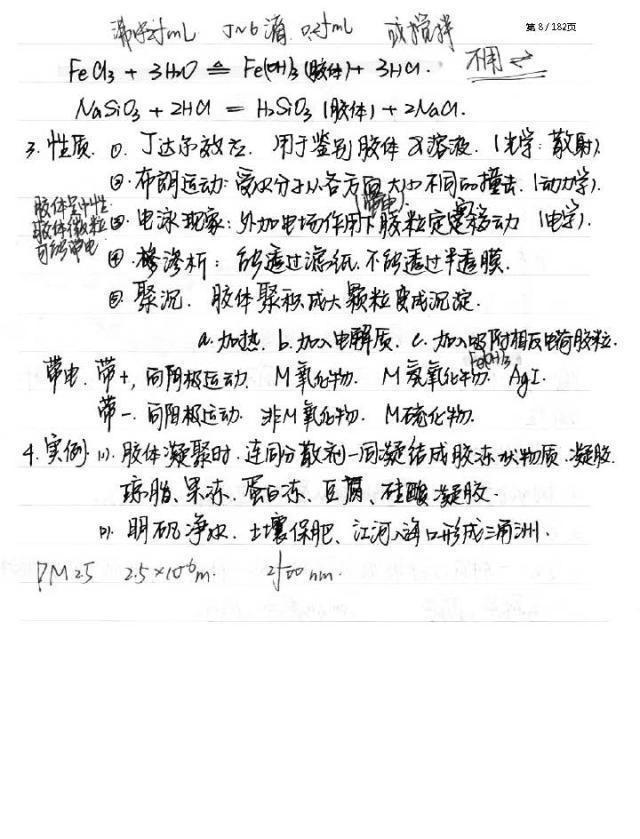 第 8 / 182页
沸水25mL 5~6滴 0.25mL 或搅拌
FeCl₃ + 3H₂O ≜ Fe(OH)₃(胶体) + 3HCl. 不用⇌
NaSiO₃ + 2HCl = H₂SiO₃(胶体) + 2NaCl.
3. 性质. ①. 丁达尔效应. 用于鉴别胶体及溶液. (光学:散射).
②. 布朗运动: 受水分子从各方面大小不同的撞击. (动力学).
胶体呈中性
胶体微粒
可能带电
③. 电泳现象: 外加电场作用下胶粒(带电)定向移动 (电学).
④. 渗析: 能透过滤纸.不能透过半透膜.
⑤. 聚沉. 胶体聚积成大颗粒变成沉淀.
a. 加热. b. 加入电解质. c. 加入吸附相反电荷胶粒.
带电. 带+, 向阴极运动. M氧化物. M氢氧化物. Fe(OH)₃ AgI.
带-. 向阳极运动. 非M氧化物. M硫化物.
4. 实例. (1). 胶体凝聚时.连同分散剂一同凝结成胶冻状物质.凝胶.
琼脂、果冻、蛋白冻、豆腐、硅酸凝胶.
(2). 明矾净水. 土壤保肥、江河入海口形成三角洲.
PM 2.5 2.5×10⁻⁶m. 2500 nm.